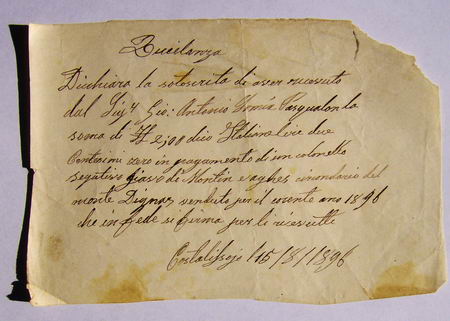 Ricitanza
Dichiara la sotoscrita di aver riceuto
dal Sigʳ Gio: Antonio Pasqualon la
soma di # 2,00 dico Italiane lire due
Centesimi zero in pagamento di un colonello
segativo giaso di Montin e aghes smondario del
monte Dignas venduto per il corente ano 1896
che in fede si firma per li riceutti
Costalissojo 15/8/1896